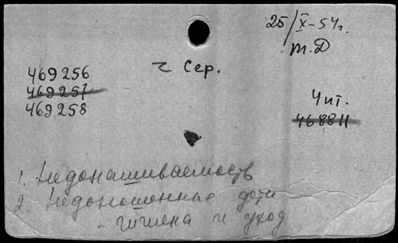 25/X-54г.
т.Д
469256
469257
469258
г Сер.
Чит.
468811
1. Недонашиваемость
2. Недоношенные дети
- гигиена и уход